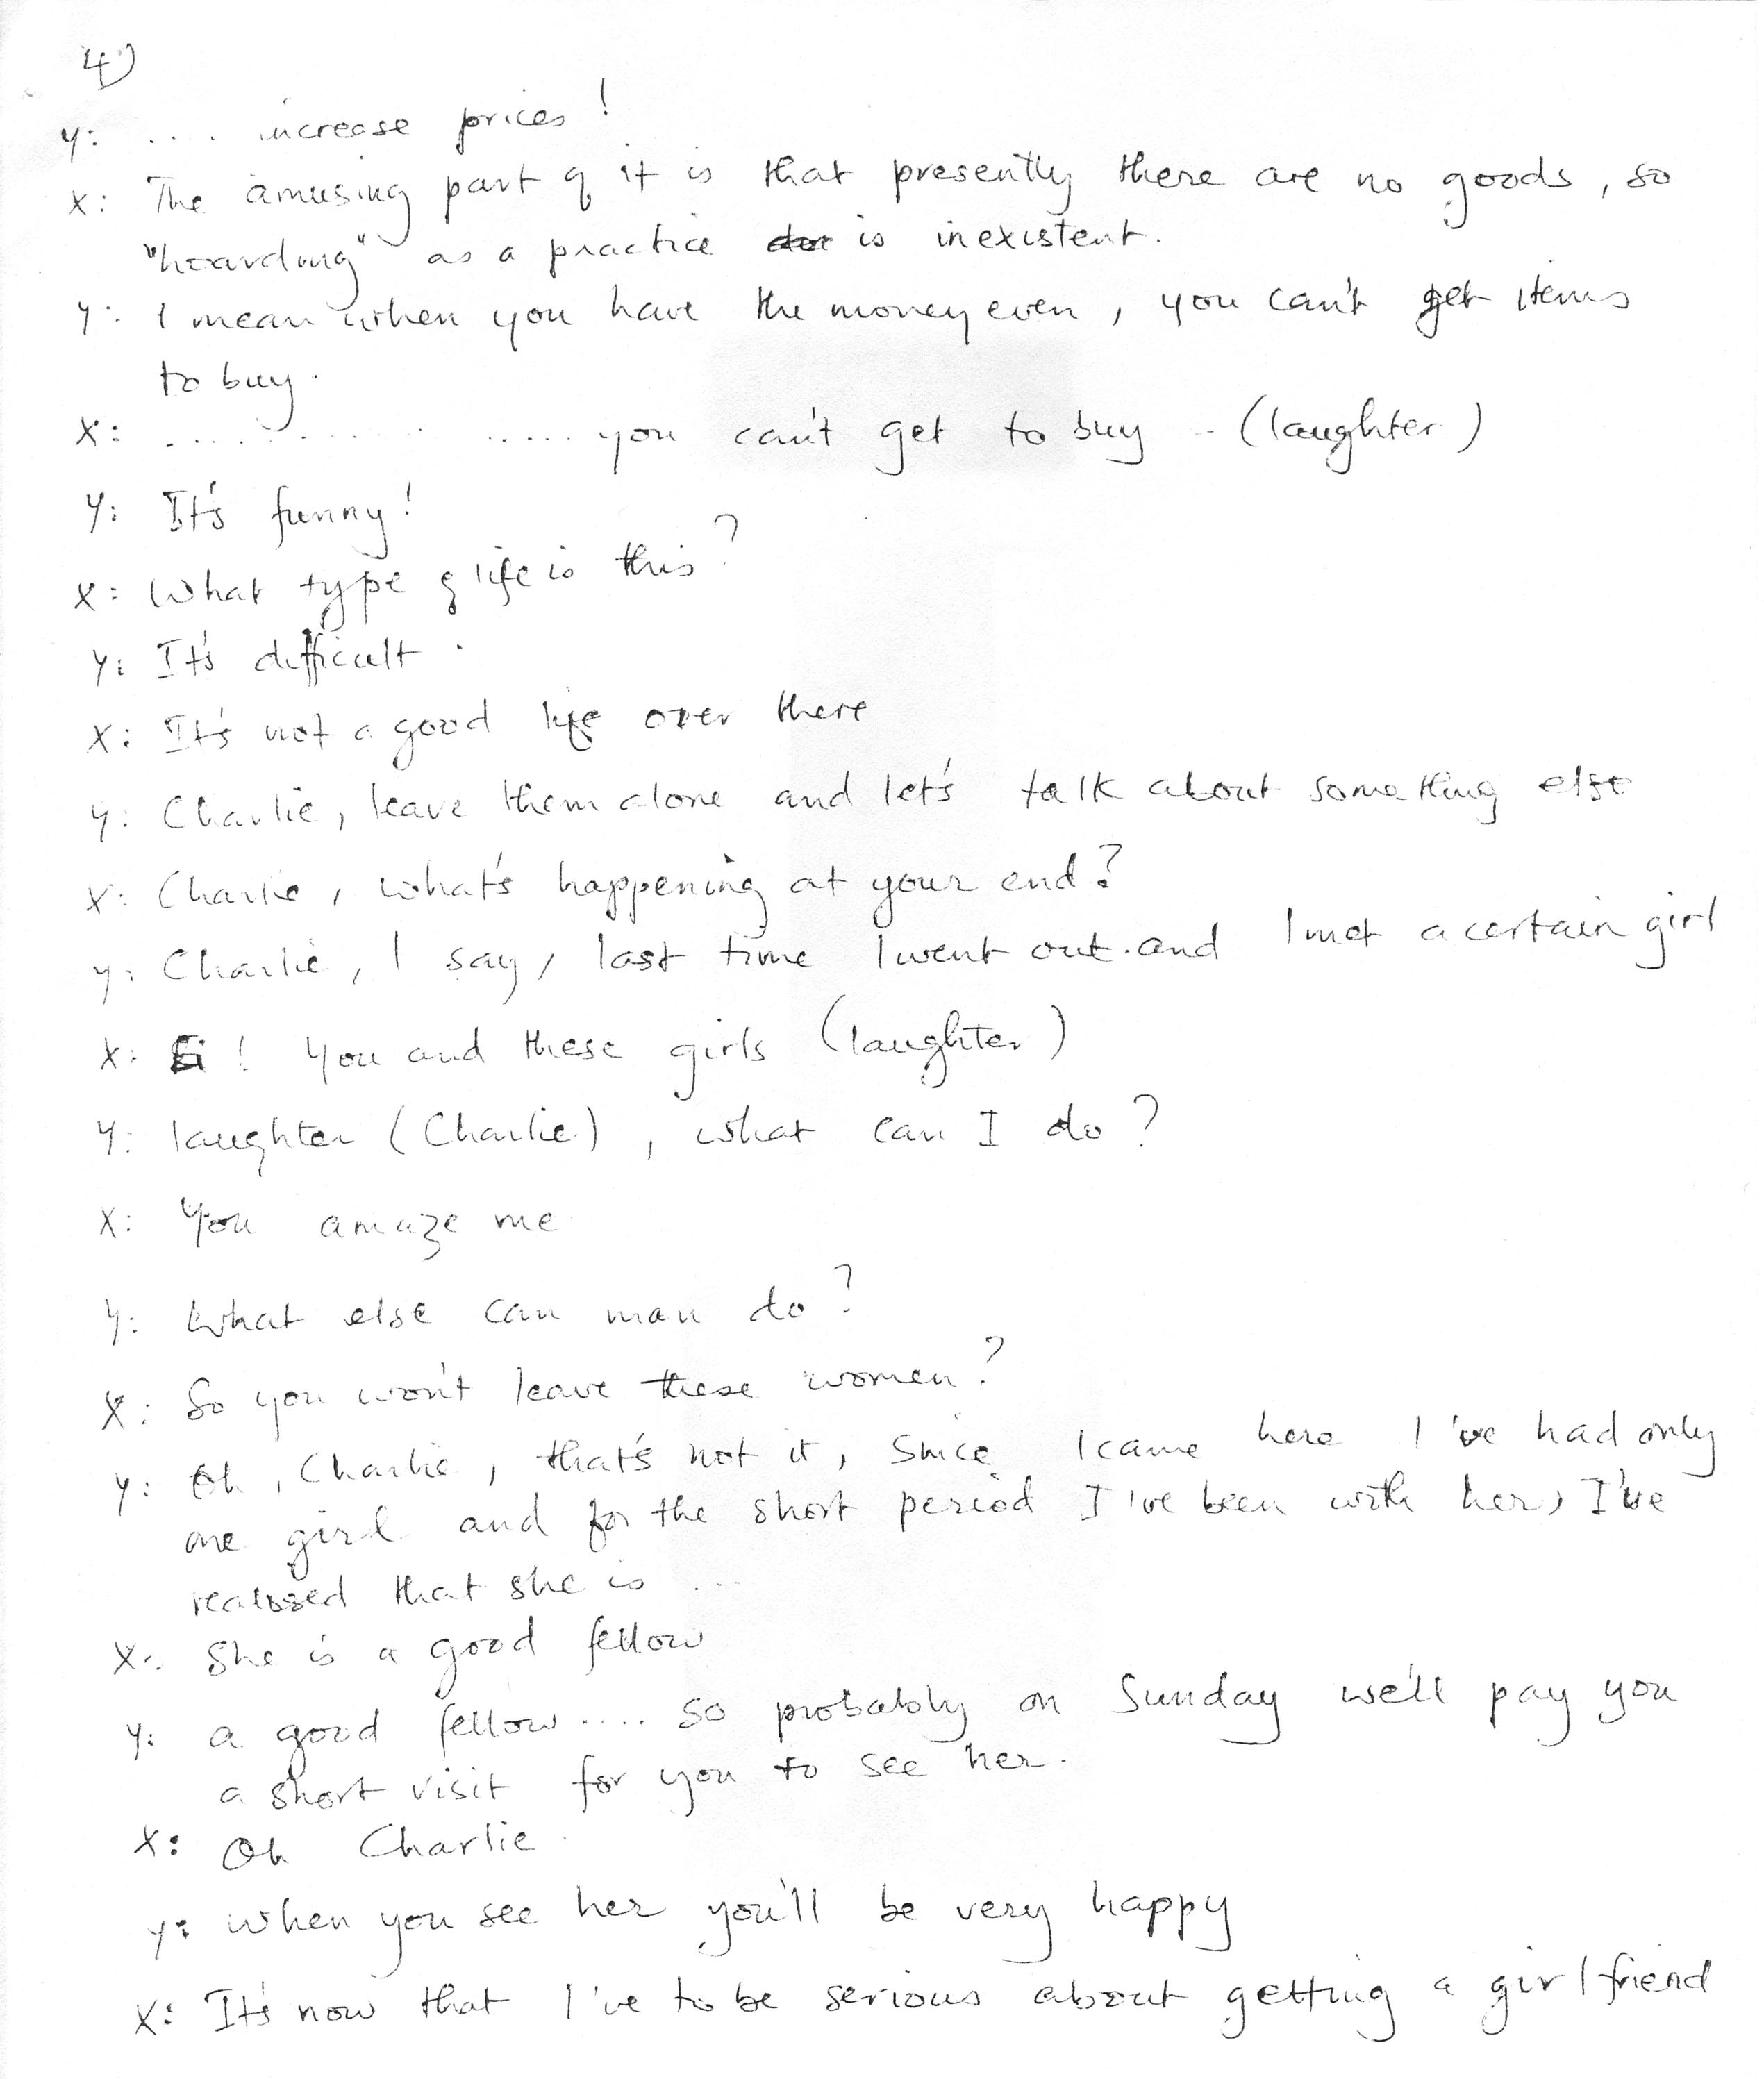 4)
Y: .... increase prices!
X: The amusing part of it is that presently there are no goods, so
"hoarding" as a practice is inexistent.
Y: I mean when you have the money even, you can't get items
to buy.
X: .................. you can't get to buy - (laughter)
Y: It's funny!
X: What type of life is this?
Y: It's difficult.
X: It's not a good life over there
Y: Charlie, leave them alone and let's talk about something else
X: Charlie, what's happening at your end?
Y: Charlie, I say, last time I went out and I met a certain girl
X: Ei! You and these girls (laughter)
Y: laughter (Charlie), what can I do?
X: You amaze me
Y: What else can man do?
X: So you won't leave these women?
Y: Oh, Charlie, that's not it, since I came here I've had only
one girl and for the short period I've been with her, I've
realised that she is ...
X: She is a good fellow
Y: a good fellow.... so probably on Sunday we'll pay you
a short visit for you to see her.
X: Oh Charlie
Y: when you see her you'll be very happy
X: It's now that I've to be serious about getting a girlfriend